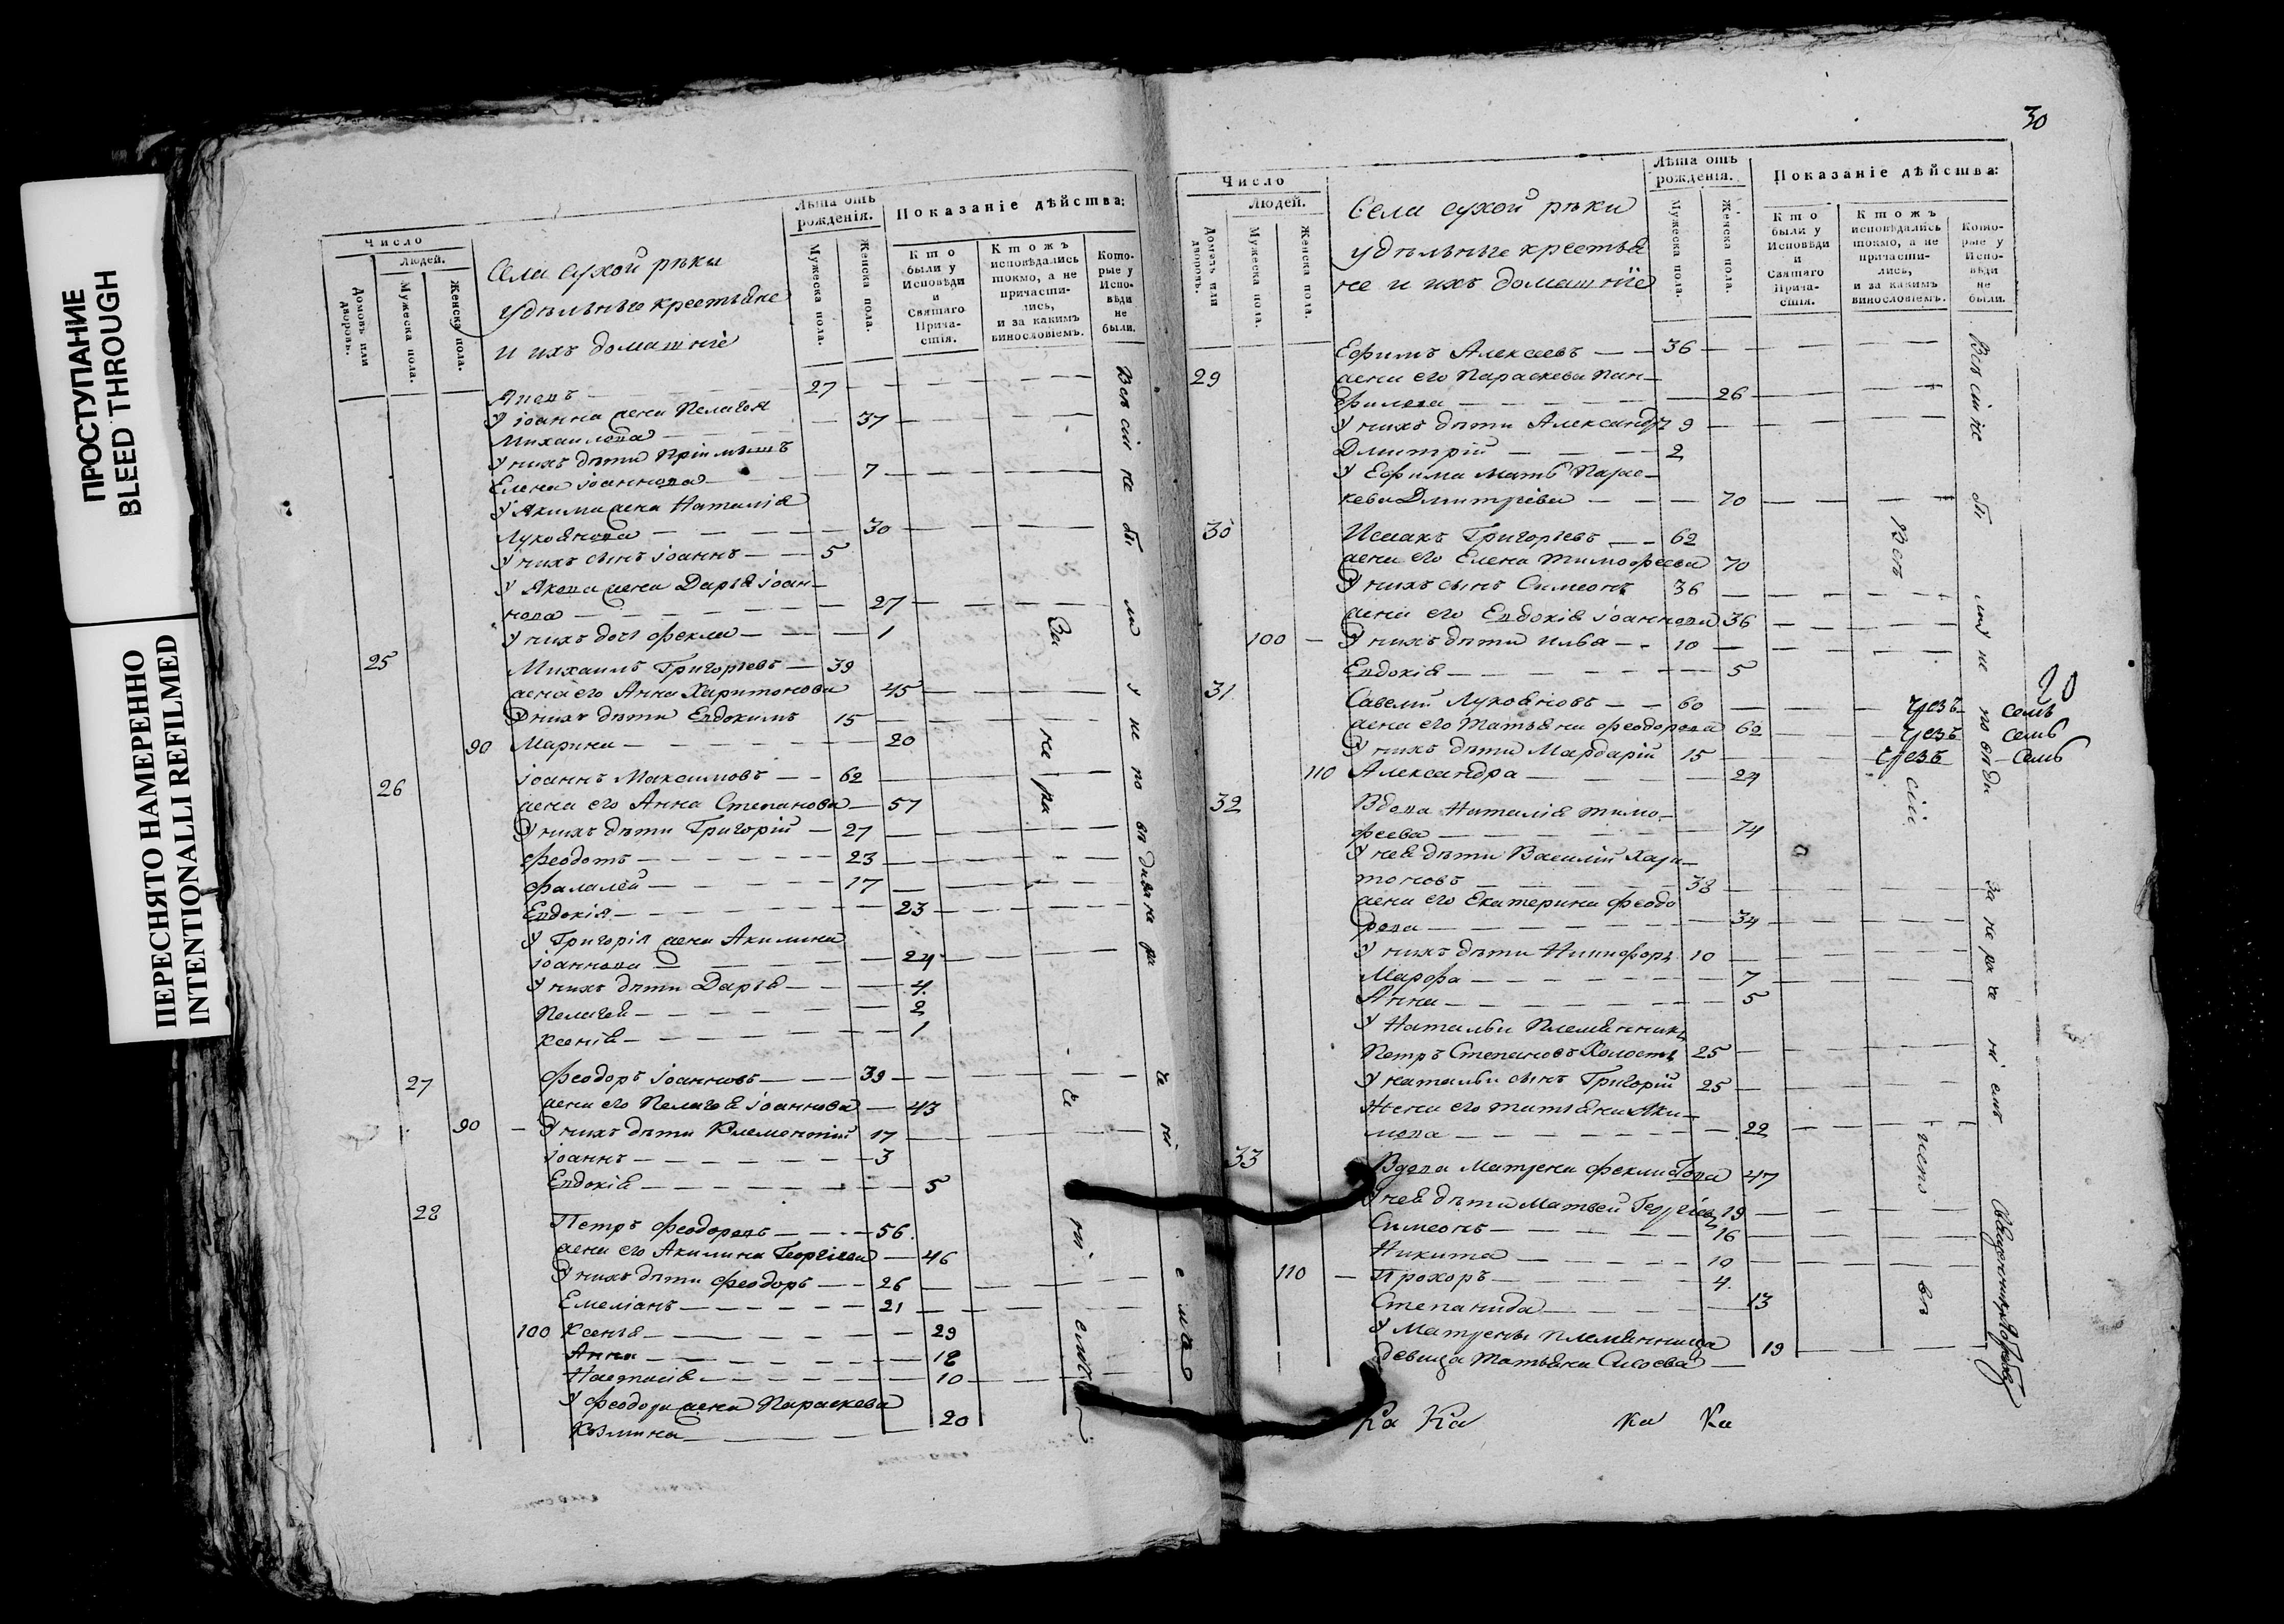 ПРОСТУПАНИЕ
BLEED THROUGH
ПЕРЕСНЯТО НАМЕРЕННО
INTENTIONALLI REFILMED
Число
Людей.
Домовъ или дворовъ.
Мужеска пола.
Женска пола.
Села сухой рѣки
удѣльныя крестьяне
и ихъ домашніе
Лѣта отъ рожденія.
Мужеска пола.
Женска пола.
Показаніе дѣйства:
Кто были у Исповѣди и Святаго Причастія.
Ктожъ исповѣдались токмо, а не причастились, и за какимъ винословіемъ.
Которые у Исповѣди не были.
27
У іоанна жена Пелагея
Михаилова 37
У нихъ дѣти Пріимышъ
Елена іоаннова 7
У Акима жена Наталія
Лукоянова 30
У нихъ сынъ іоаннъ 5
У Якова жена Дарья іоан-
нова 27
У нихъ доч Фекла 1
25 Михаилъ Григорьевъ 39
жена его Анна Харитонова 45
У нихъ дѣти Евдокимъ 15
90 Марина 20
26 іоаннъ Максимовъ 62
жена его Анна Степанова 57
У нихъ дѣти Григорій 27
Феодотъ 23
Фалалей 17
Евдокія 23
У Григорія жена Акилина
іоаннова 24
У нихъ дѣти Дарья 4
Пелагея 2
Ксенія 1
27 Феодоръ іоанновъ 39
жена его Пелагея іоаннова 43
90 У нихъ дѣти Клементій 17
іоаннъ 3
Евдокія 5
28 Петръ Феодоровъ 56
жена его Акилина Георгіева 46
У нихъ дѣти Феодоръ 26
Емеліанъ 21
100 Ксенья 29
Анна 18
Наталія 10
У Феодора жена Параскева
Козмина 20
30
Число
Людей.
Домовъ или дворовъ.
Мужеска пола.
Женска пола.
Села сухой рѣки
удѣльныя крестья
не и ихъ домашніе
Лѣта отъ рожденія.
Мужеска пола.
Женска пола.
Показаніе дѣйства:
Кто были у Исповѣди и Святаго Причастія.
Ктожъ исповѣдались токмо, а не причастились, и за какимъ винословіемъ.
Которые у Исповѣди не были.
Ефимъ Алексеевъ 36
29 жена его Параскева Пан-
филова 26
У нихъ дѣти Александръ 9
Дмитрій 2
У Ефима мать Парас-
кева Дмитріева 70
30 Исаакъ Григорьевъ 62
жена его Елена Тимофеева 70
У нихъ сынъ Симеонъ 36
жена его Евдокія іоаннова 36
100 У нихъ дѣти Илья 10
Евдокія 5
20
31 Савелій Лукояновъ 60 чрезъ семь
жена его Татьяна Феодорова 62 чрезъ семь
У нихъ дѣти Мардарій 15 чрезъ семь
110 Александра 24
32 Вдова Наталія Тимо-
феева 74
У нея дѣти Василій Хари-
тоновъ 38
жена его Екатерина Феодо
рова 34
У нихъ дѣти Никифоръ 10
Марфа 7
Анна 5
У Натальи племянникъ
Петръ Степановъ Холостъ 25
У Натальи сынъ Григорій 25
Жена его Татьяна Аки-
мова 22
33 Вдова Матрена 47
У нея дѣти Матвей Георгіевъ 19
Симеонъ 16
Никита 10
110 Прохоръ 4
Степанида 13
У Матрены племянница
девица Татьяна Сысоева 19
Ка Ка Ка Ка